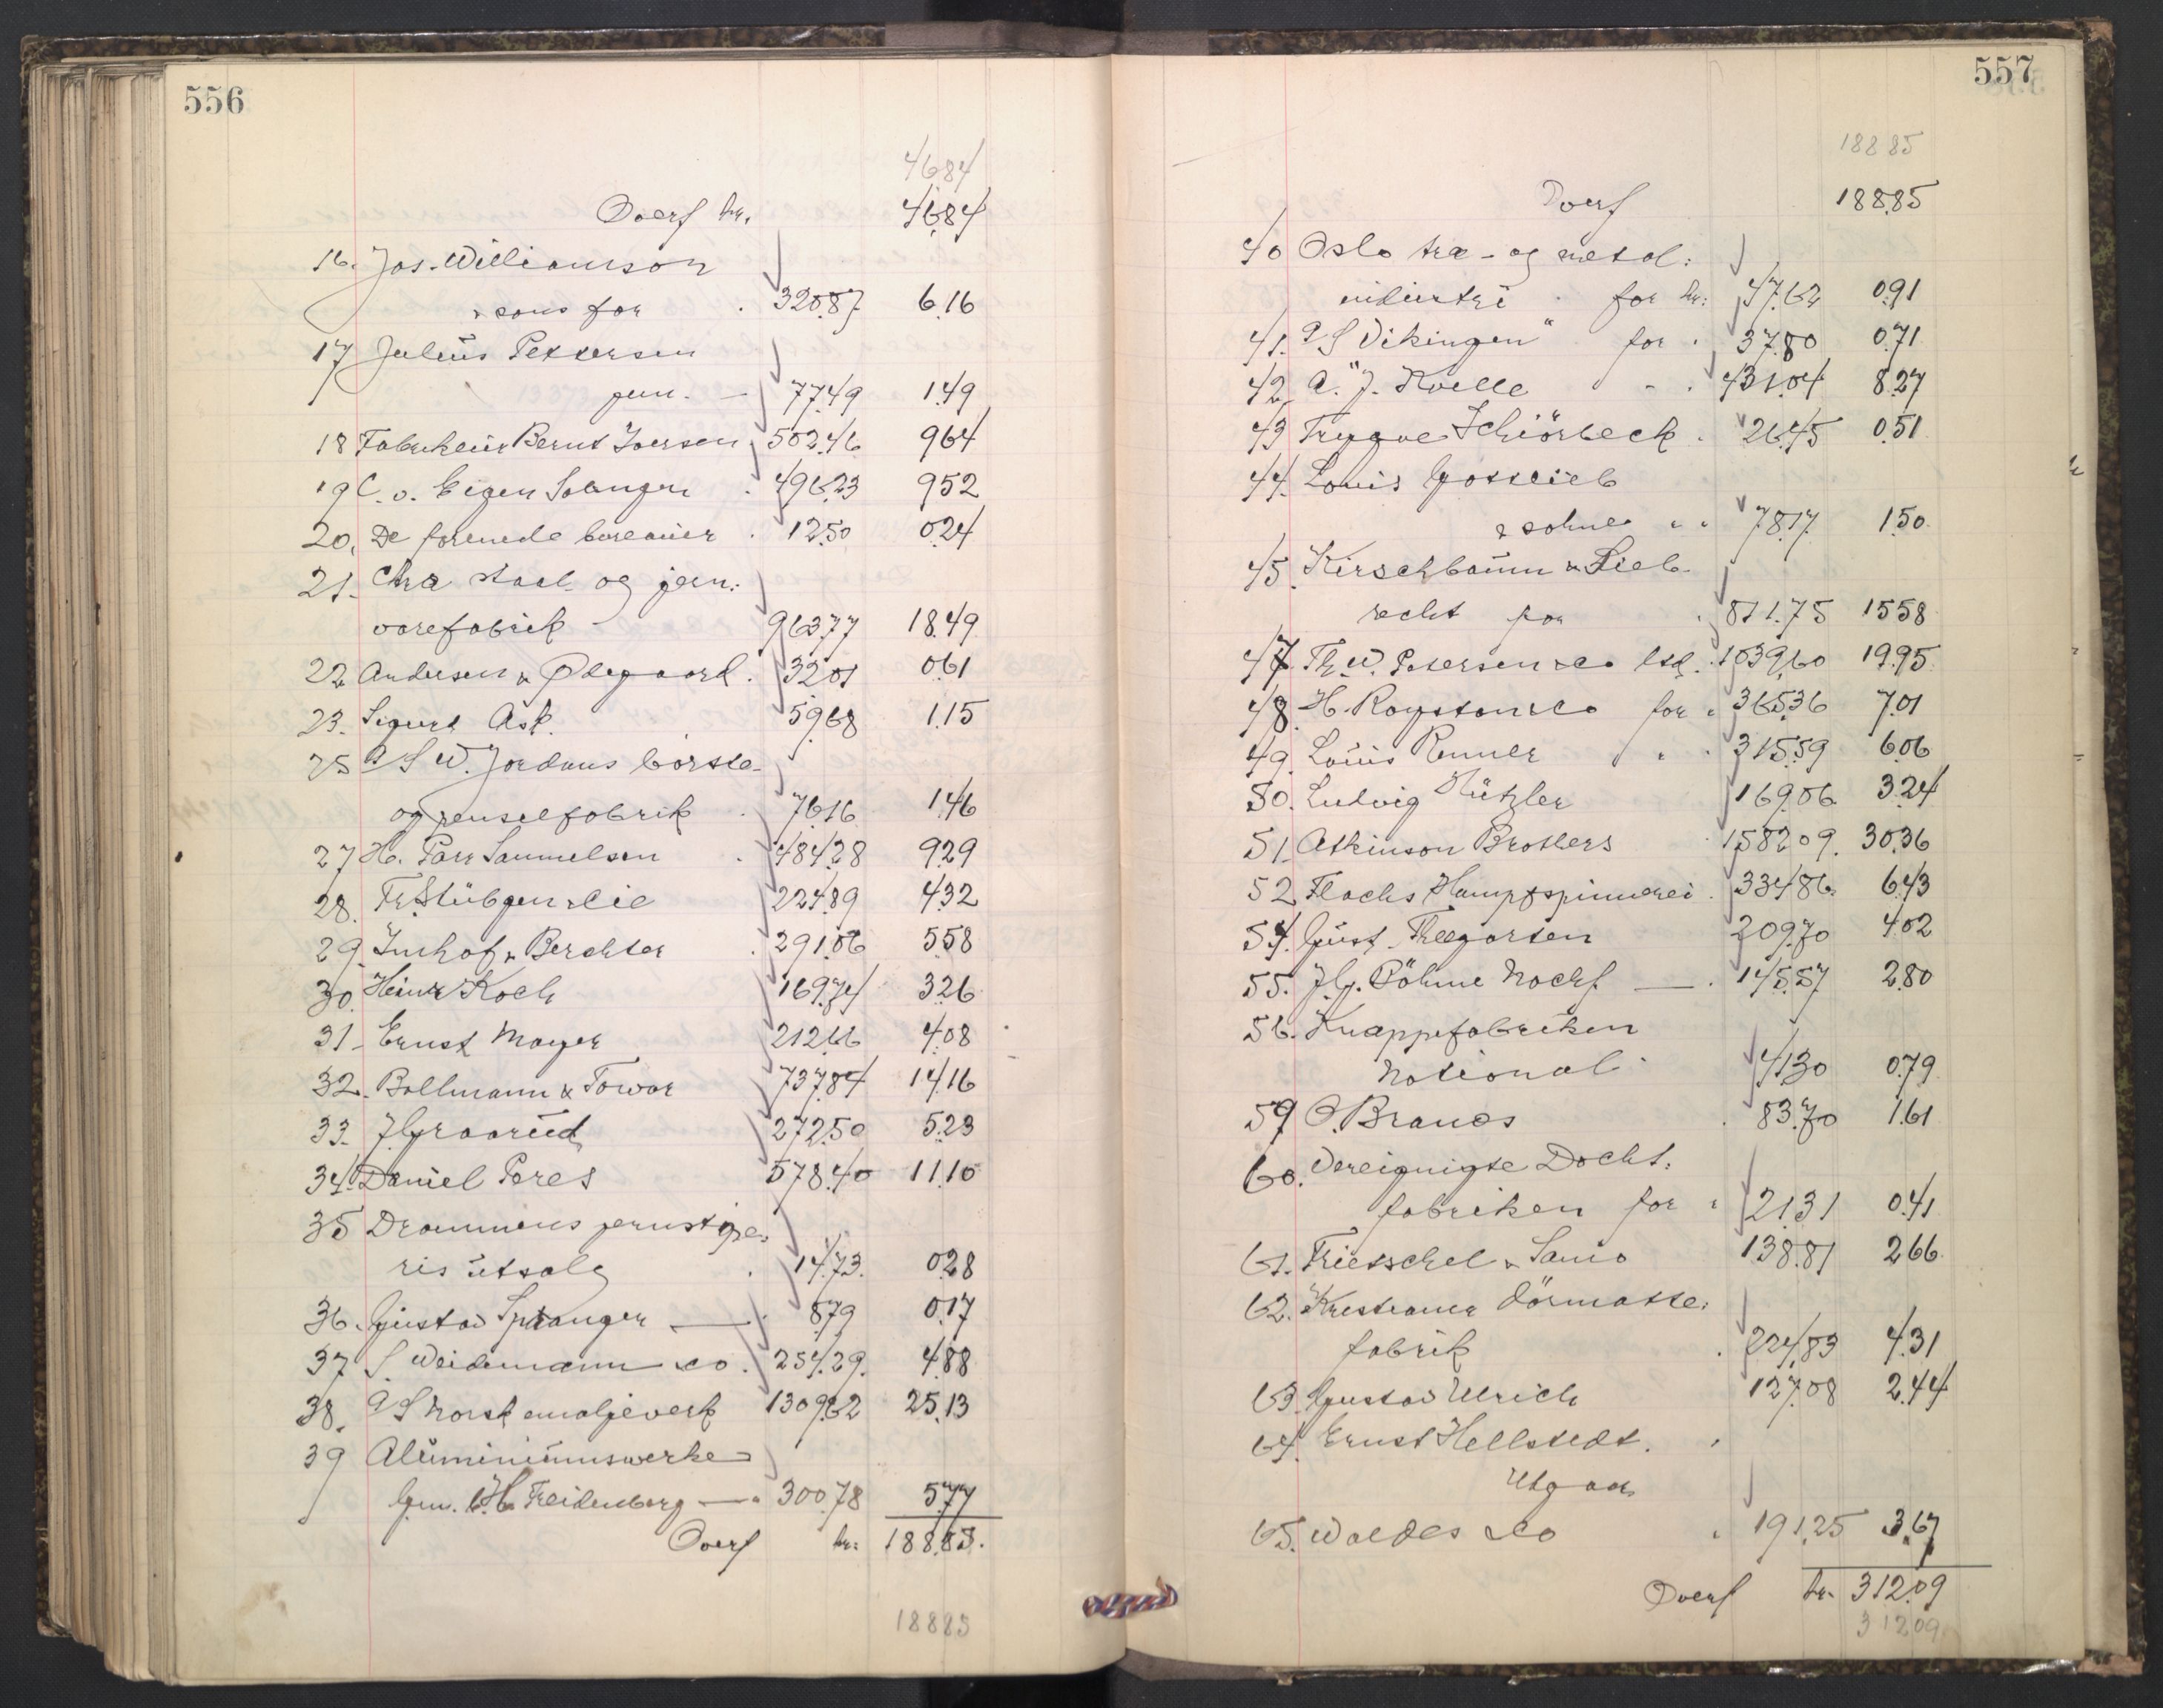 556
4684
Overf kr. 46.84
16. Jos. Williamson
& sons for 320.87 6.16
17 Julius Pettersen
jun. — 77.49 1.49
18 Fabrikeier Bernt Iversen 502.46 9.64
19 C. v. Eigen Solingen 496.23 9.52
20. De forenede bureauer 12.50 0.24
21. Chra staal- og jern:
varefabrik 963.77 18.49
22 Andersen & Ødegaard 32.01 0.61
23. Sigurd Ask. 59.68 1.15
25 A/S W. Jordans börste-
og penselfabrik 76.16 1.46
27 H. Parr Samuelsen 484.28 9.29
28. Fr. Stübgen & Cie 224.89 4.32
29. Imhof & Berchter 291.06 5.58
30. Heinr Koch 169.74 3.26
31. Ernst Mayer 212.66 4.08
32. Bollmann & Towar 737.84 14.16
33. J. Graarud 272.50 5.23
34. Daniel Peres 578.40 11.10
35 Drammens jernstøpe-
ris utsalg 14.73. 0.28
36. Gustav Spranger — 8.79 0.17
37 S. Weidemann & co. 254.29. 4.88
38. A/S Norsk emaljeverk 1309.62 25.13
39 Aluminiumswerke
Gm. b. H. Freidenberg — 300.78 5.77
Overf kr. 188.85.
18885
557
18885
Overf 188.85
40 Oslo træ- og metal:
industri for kr: 47.62 0.91
41. A/S "Vikingen" for 37.80 0.71
42 A. J. Kvelle 431.04 8.27
43 Trygve Schiörbeck. 26.45 0.51
44. Louis Gottlieb
& sohne " " 78.17 1.50
45. Kirschbaum & Lieb-
recht for 811.75 15.58
47. Th. W. Petersen & co ltd. 1039.60 19.95
48. H. Royston & co for 365.36 7.01
49. Louis Renner " 315.59 6.06
50. Ludvig Hützler 169.06 3.24
51. Atkinson Brothers 1582.09. 30.36
52 Flachs Hampfspinnerei 334.86 6.43
54. Gust. Theegarten 209.70 4.02
55. J. G. Böhme Nachf — 145.57 2.80
56. Knappefabriken
National 41.30 0.79
59 O. Brands 83.70 1.61
60. Vereignigte Docht:
fabriken for " 21.31 0.41
61. Trietschel & Sanio 138.81 2.66
62. Kristiania dörmatte:
fabrik 224.83 4.31
63. Gustav Ulrich 127.08 2.44
64. Ernst Hellstedt.
Utgaar
65. Waldes & Co 191.25 3.67
Overf kr. 312.09
31209